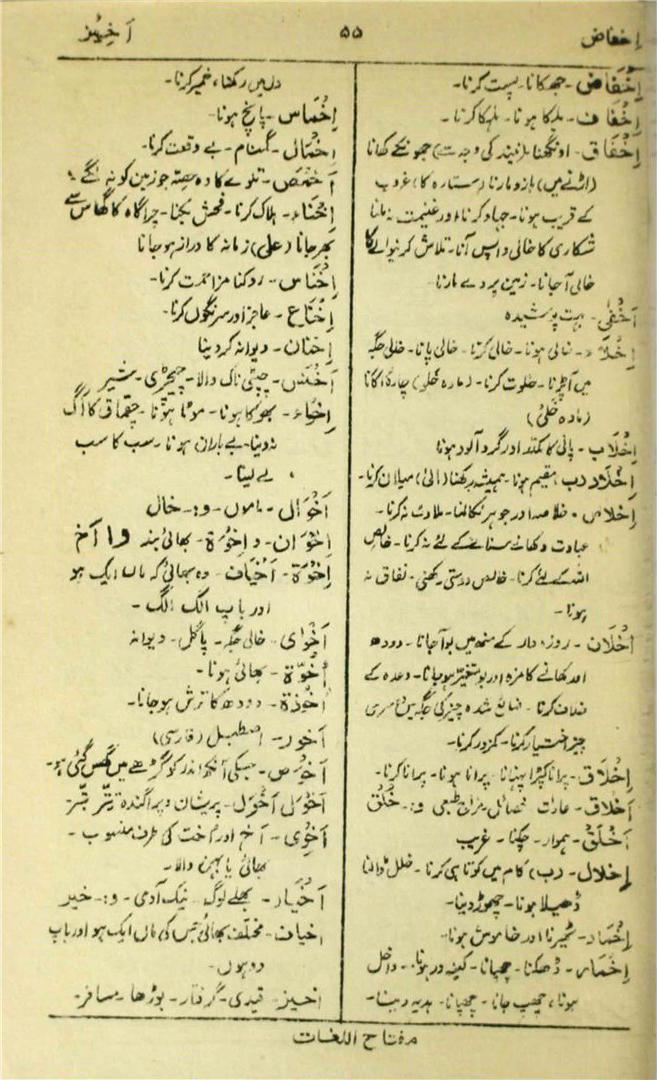 اِخفاض
۵۵
آخِیذ
اِخْفَاض - جھکانا - پست کرنا -
اِخْفَاف - ہلکا ہونا - ہلکا کرنا -
اِخْفَاق - اونگھنا (نیند کی وجہ سے) جھونکے کھانا
(اڑنے میں) بازو مارنا (ستارہ کا) غروب
کے قریب ہونا - جہاد کرنا اور غنیمت نہ ملنا
شکاری کا خالی واپس آنا - تلاش کرنیوالے کا
خالی آجانا - زمین پر دے مارنا
اَخْفٰی - بہت پوشیدہ
اِخْلَاء - خالی ہونا - خالی کرنا - خالی پانا - خالی جگہ
میں آپڑنا - خلوت کرنا - (مادہ خلو) چارہ اگانا
(مادہ خلیٰ)
اِخْلَاب - پانی کا مکدر اور گرد آلود ہونا
اِخْلَاد (ب) مقیم ہونا - ہمیشہ رکھنا (الیٰ) میلان کرنا -
اِخلاص - خلاصہ اور جوہر نکالنا - ملاوٹ نہ کرنا -
عبادت دکھانے سنانے کے لئے نہ کرنا - خالص
اللہ کے لئے کرنا - خالص دوستی رکھنی - نفاق نہ
ہونا -
اخلاف - روزہ دار کے منھ میں بو آجانا - دودھ
اور کھانے کا مزہ اور بو متغیر ہو جانا - وعدہ کے
خلاف کرنا - ضائع شدہ چیز کی جگہ میں دوسری
چیز اختیار کرنا - کمزور کرنا -
اِخْلَاق - پرانا کپڑا پہنانا - پرانا ہونا - پرانا کرنا -
اَخلاق - عادات خصائل مزاج طبعی و: - خُلُق
اَخْلَق - ہموار - چکنا - غریب
اِخلال - (ب) کام میں کوتاہی کرنا - خلل ڈالنا
ڈھیلا ہونا - چھوڑ دینا -
اِخْمَاد - ٹھیرنا اور خاموش ہونا -
اِخْمَار - ڈھکنا - چھپانا - کینہ ور ہونا - داخل
ہونا، چھپ جانا - چھپانا - ہدیہ دینا -
دل میں رکھنا، خمیر کرنا -
اِخْمَاس - پانچ ہونا -
اِخْمَال - گمنام - بے وقعت کرنا -
اَخْمَص - تلوے کا وہ حصہ جو زمین کو نہ لگے
اِخْنَاء - ہلاک کرنا - فحش بکنا - چراگاہ کا گھاس سے
بھر جانا (علی) زمانہ کا دراز ہو جانا
اِخْنَاس - روکنا مزاحمت کرنا -
اِخْنَاع - عاجز اور سرنگوں کرنا -
اِخنان - دیوانہ کر دینا
اَخْنَس - چپٹی ناک والا - چیچڑی - شیر
اِخْوَاء - بھوکا ہونا - موٹا ہونا - چقماق کا آگ
نہ دینا - بے باران ہونا - سب کا سب
لے لینا -
اَخْوَال - ماموں - و: - خال
اِخْوَان - و اِخْوَة - بھائی بند و اَخ
اِخْوَة - اَخْیَاف - وہ بھائی کہ ماں ایک ہو
اور باپ الگ الگ -
اَخْوای - خالی جگہ - پاگل - دیوانہ
اُخُوَّة - بھائی ہونا -
اُخُوذَة - دودھ کا ترش ہو جانا -
آخور - اصطبل (فارسی)
اَخْوَص - جسکی آنکھ اندر کو گڑھے میں گھس گئی ہو -
اَخْوَل اَخْوَل - پریشان و پراگندہ تِتّر بِتّر
اَخَوِی - آخ اور اُخت کی طرف منسوب -
بھائی یا بہن والا -
اَخْیَار - بھلے لوگ - نیک آدمی - و: - خیر
اخیاف - مختلف بھائی جس کی ماں ایک ہو اور باپ
دو ہوں -
اخیذ - قیدی - گرفتار - بوڑھا - مسافر -
مفتاح اللغات